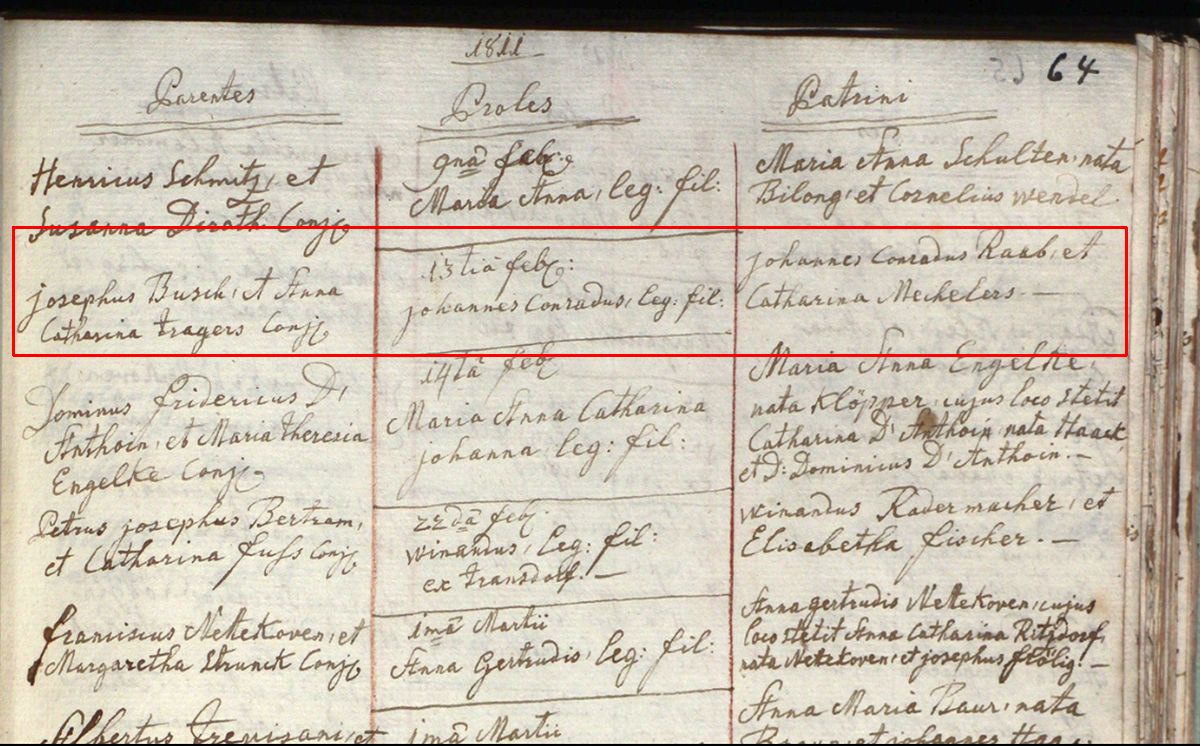 1811
64
Parentes
Proles
Patrini
Henricus Schmitz, et
Susanna Dirath. Conj.
9nā feb:
Maria Anna, leg: fil:
Maria Anna Schulten, nata
Bilong, et Cornelius Wendel
josephus Busch, et Anna
Catharina Tragers Conj.
13tiā feb:
johannes Conradus, leg: fil:
johannes Conradus Raab, et
Catharina Mechelers. —
Dominus fridericus D'
Anthoin, et Maria Theresia
Engelke Conj.
14tā feb.
Maria Anna Catharina
johanna leg: fil:
Maria Anna Engelke,
nata Klöpper, cujus loco stetit
Catharina D'Anthoin, nata Haack,
et D: Dominicus D'Anthoin. —
Petrus josephus Bertram,
et Catharina fuss Conj.
22dā feb.
winandus, leg: fil:
ex Transdorf. —
winandus Radermacher, et
Elisabetha fischer. —
franciscus Nettekoven, et
Margaretha Strunck Conj.
1mā Martii
Anna Gertrudis, leg: fil:
Anna gertrudis Nettekoven, cujus
loco stetit Anna Catharina Ritzdorf,
nata Nettekoven, et josephus flölig. —
Albertus Trevisani, et
1mā Martii
Anna Maria Baur, nata
et johannes